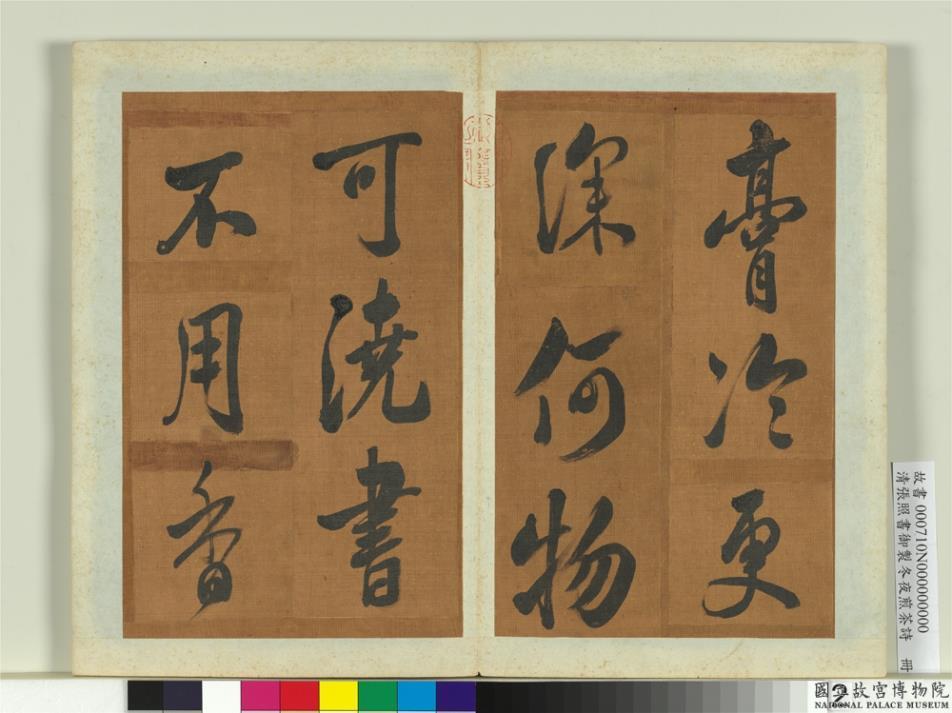 膏冷更
深何物
可澆書
不用香
故書 000710N000000000
清張照書御製冬夜煎茶詩 冊
國立故宮博物院
NATIONAL PALACE MUSEUM
2